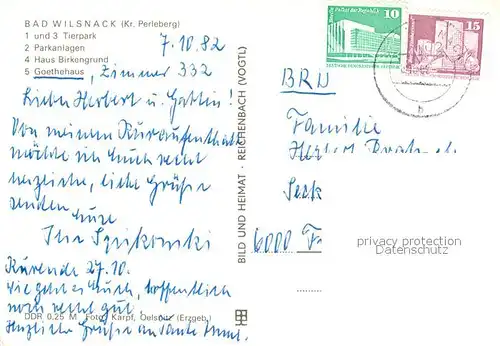 BAD WILSNACK (Kr. Perleberg)
1 und 3 Tierpark
2 Parkanlagen
4 Haus Birkengrund
5 Goethehaus, Zimmer 332
7.10.82
Lieber Herbert u. Gattin!
Von meinem Kuraufenthalt
möchte ich Euch recht
herzliche, liebe Grüße
senden
Eure
Kurende 27.10.
Wie geht es Euch, hoffentlich
noch recht gut.
Herzliche Grüße an Tante
DDR 0,25 M Foto: Karpf, Oelsnitz (Erzgeb.)
BILD UND HEIMAT · REICHENBACH (VOGTL)
10
15
BRD
Familie
Herbert
6000 F
privacy protection
Datenschutz